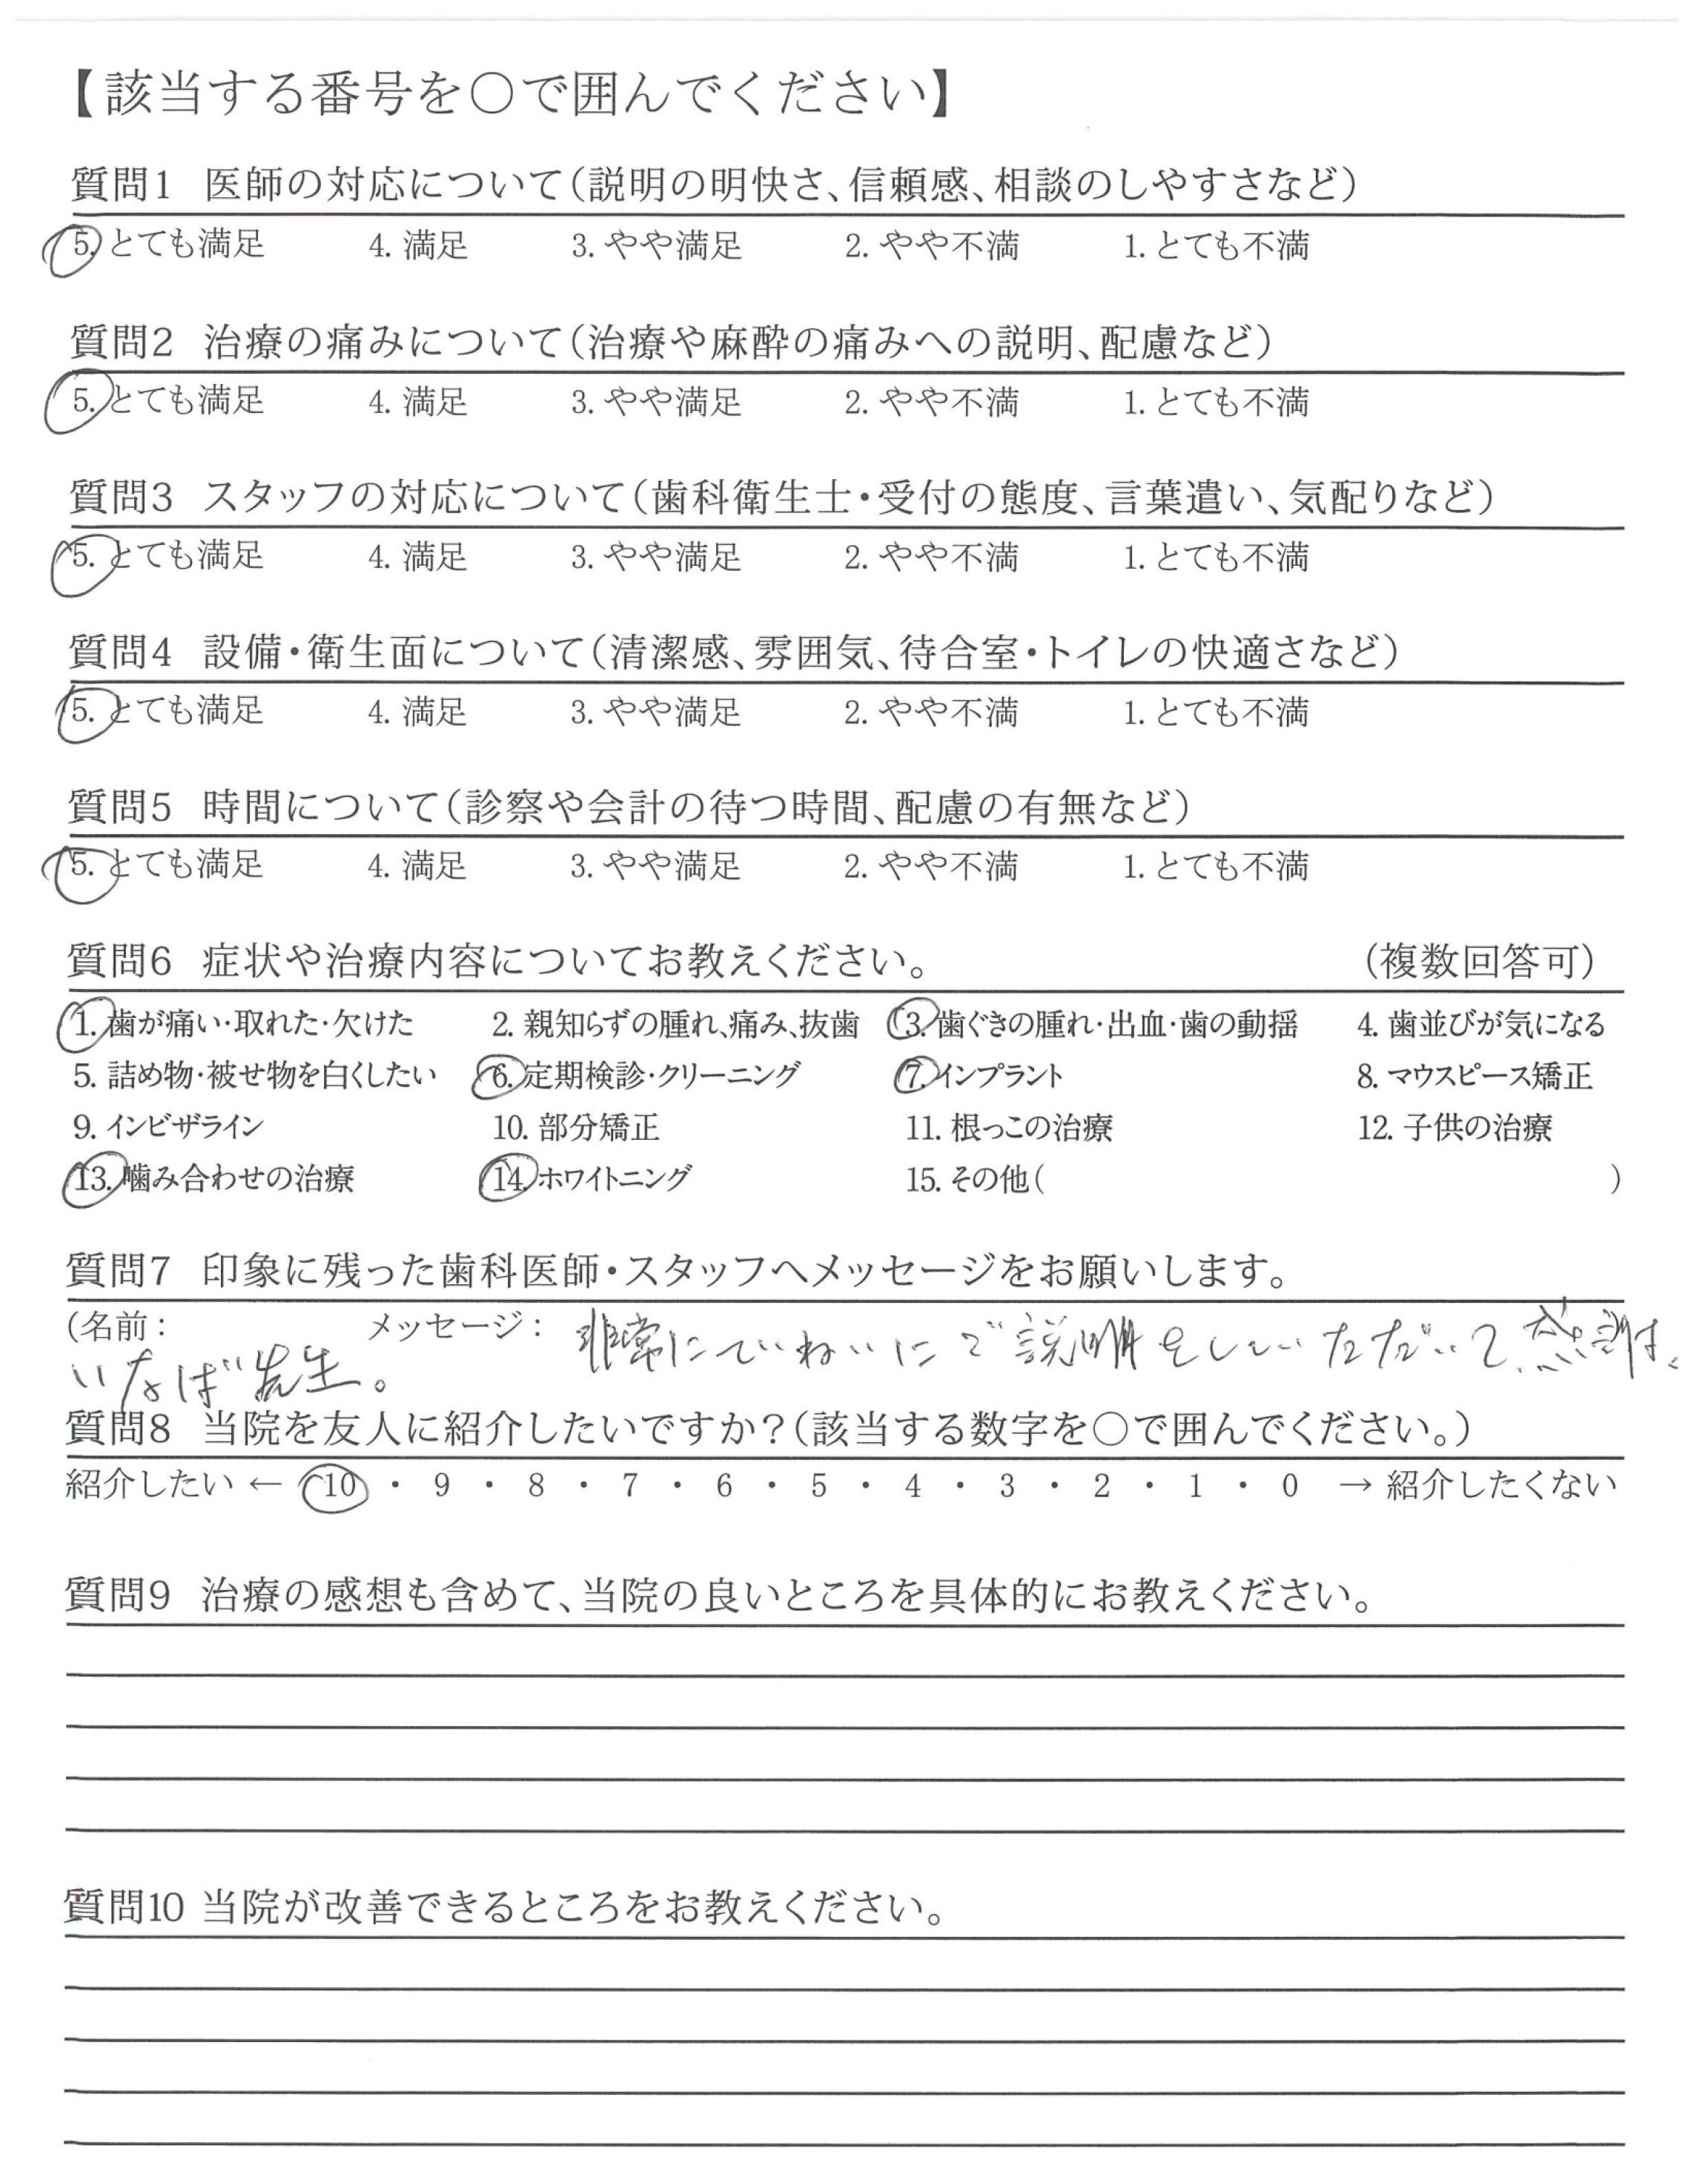 【該当する番号を○で囲んでください】
質問1 医師の対応について(説明の明快さ、信頼感、相談のしやすさなど)
5. とても満足 4. 満足 3. やや満足 2. やや不満 1. とても不満
質問2 治療の痛みについて(治療や麻酔の痛みへの説明、配慮など)
5. とても満足 4. 満足 3. やや満足 2. やや不満 1. とても不満
質問3 スタッフの対応について(歯科衛生士・受付の態度、言葉遣い、気配りなど)
5. とても満足 4. 満足 3. やや満足 2. やや不満 1. とても不満
質問4 設備・衛生面について(清潔感、雰囲気、待合室・トイレの快適さなど)
5. とても満足 4. 満足 3. やや満足 2. やや不満 1. とても不満
質問5 時間について(診察や会計の待つ時間、配慮の有無など)
5. とても満足 4. 満足 3. やや満足 2. やや不満 1. とても不満
質問6 症状や治療内容についてお教えください。 (複数回答可)
1. 歯が痛い・取れた・欠けた 2. 親知らずの腫れ、痛み、抜歯 3. 歯ぐきの腫れ・出血・歯の動揺 4. 歯並びが気になる
5. 詰め物・被せ物を白くしたい 6. 定期検診・クリーニング 7. インプラント 8. マウスピース矯正
9. インビザライン 10. 部分矯正 11. 根っこの治療 12. 子供の治療
13. 噛み合わせの治療 14. ホワイトニング 15. その他( )
質問7 印象に残った歯科医師・スタッフへメッセージをお願いします。
(名前: メッセージ: 非常にていねいにご説明をしていただいて、感謝。
いなば先生。
質問8 当院を友人に紹介したいですか?(該当する数字を○で囲んでください。)
紹介したい ← 10 ・ 9 ・ 8 ・ 7 ・ 6 ・ 5 ・ 4 ・ 3 ・ 2 ・ 1 ・ 0 → 紹介したくない
質問9 治療の感想も含めて、当院の良いところを具体的にお教えください。
質問10 当院が改善できるところをお教えください。